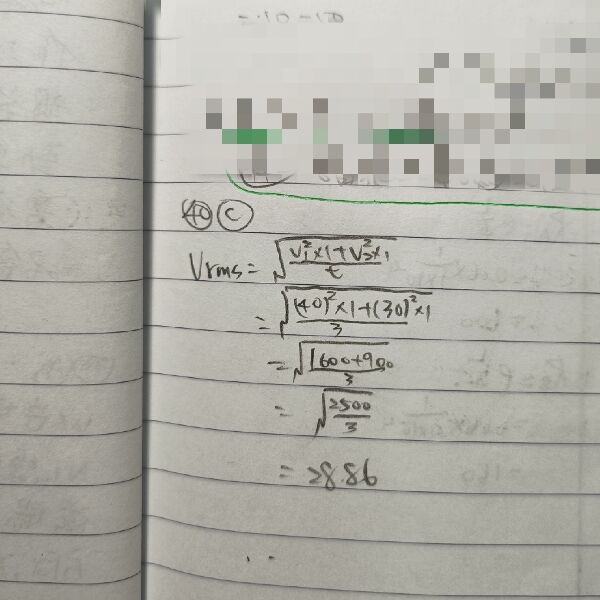 40 C
Vrms = √(V₁²×1+V₂²×1 / t)
= √((40)²×1+(30)²×1 / 3)
= √(1600+900 / 3)
= √(2500 / 3)
= 28.86